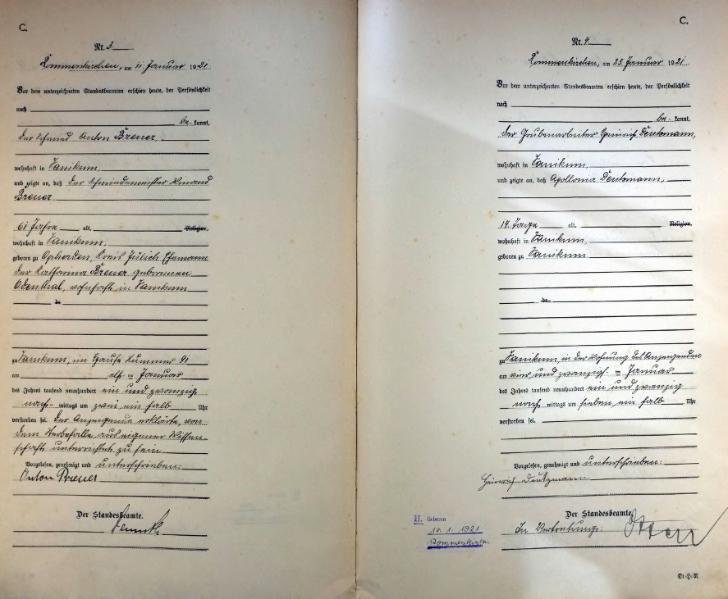 C.
Nr. 3
Rommerskirchen, am 11. Januar 1921.
Vor dem unterzeichneten Standesbeamten erschien heute, der Persönlichkeit
nach
be- kannt,
der Schmied Anton Brener,
wohnhaft in Vanikum,
und zeigte an, daß der Schmiedemeister Winand
Brener
61 Jahre alt, Religion,
wohnhaft in Vanikum,
geboren zu Kreis Jülich, Ehemann
der Katharina Brener geborenen
Odenthal, wohnhaft in Vanikum
zu Vanikum, im Hause Nummer 91
am elf- Januar
des Jahres tausend neunhundert ein und zwanzig
nach- mittags um zwei ein halb Uhr
verstorben sei. Der Anzeigende erklärte, von
dem Sterbefalle aus eigener Wissen-
schaft unterrichtet zu sein.
Vorgelesen, genehmigt und unterschrieben:
Anton Brener
Der Standesbeamte.
C.
Nr. 4
Rommerskirchen, am 25. Januar 1921.
Vor dem unterzeichneten Standesbeamten erschien heute, der Persönlichkeit
nach
be- kannt,
der Grubenarbeiter Heinrich Deutzmann,
wohnhaft in Vanikum,
und zeigte an, daß Apollonia Deutzmann,
14 Tage alt, Religion,
wohnhaft in Vanikum,
geboren zu Vanikum
zu Vanikum, in der Wohnung des Anzeigenden
am vier und zwanzig- Januar
des Jahres tausend neunhundert ein und zwanzig
nach- mittags um sieben ein halb Uhr
verstorben sei.
Vorgelesen, genehmigt und unterschrieben:
Heinrich Deutzmann
Der Standesbeamte.
In Vertretung:
Geboren
1921
Rommerskirchen